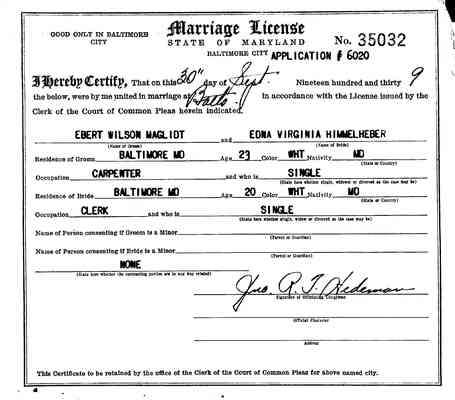 GOOD ONLY IN BALTIMORE CITY
Marriage License
STATE OF MARYLAND
BALTIMORE CITY
No. 35032
APPLICATION # 6020
I Hereby Certify, That on this 30" day of Sept. Nineteen hundred and thirty 9
the below, were by me united in marriage at Balto. in accordance with the License issued by the
Clerk of the Court of Common Pleas herein indicated.
EBERT WILSON MAGLIOT and EDNA VIRGINIA HIMMELHEBER
(Name of Groom) (Name of Bride)
Residence of Groom BALTIMORE MD Age 23 Color WHT Nativity MD
(State or Country)
Occupation CARPENTER and who is SINGLE
(State here whether single, widower or divorced as the case may be)
Residence of Bride BALTIMORE MD Age 20 Color WHT Nativity MD
(State or Country)
Occupation CLERK and who is SINGLE
(State here whether single, widow or divorced as the case may be)
Name of Person consenting if Groom is a Minor
(Parent or Guardian)
Name of Person consenting if Bride is a Minor
(Parent or Guardian)
NONE
(State here whether the contracting parties are in any way related)
Jno. R. T. Hedeman
Signature of Officiating Clergyman
Official Character
Address
This Certificate to be retained by the office of the Clerk of the Court of Common Pleas for above named city.